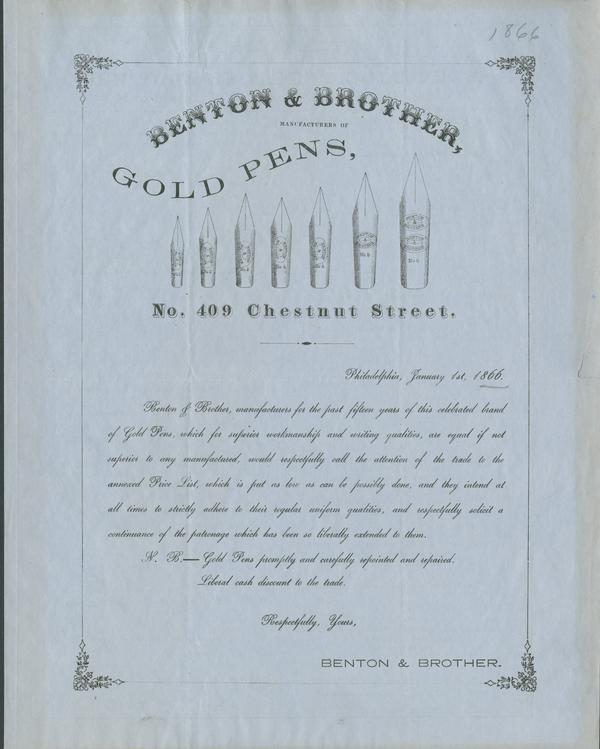 1866
BENTON & BROTHER,
MANUFACTURERS OF
GOLD PENS,
No. 409 Chestnut Street.
Philadelphia, January 1st, 1866.
Benton & Brother, manufacturers for the past fifteen years of this celebrated brand
of Gold Pens, which for superior workmanship and writing qualities, are equal if not
superior to any manufactured, would respectfully call the attention of the trade to the
annexed Price List, which is put as low as can be possibly done, and they intend at
all times to strictly adhere to their regular uniform qualities, and respectfully solicit a
continuance of the patronage which has been so liberally extended to them.
N. B.— Gold Pens promptly and carefully repointed and repaired.
Liberal cash discount to the trade.
Respectfully, Yours,
BENTON & BROTHER.